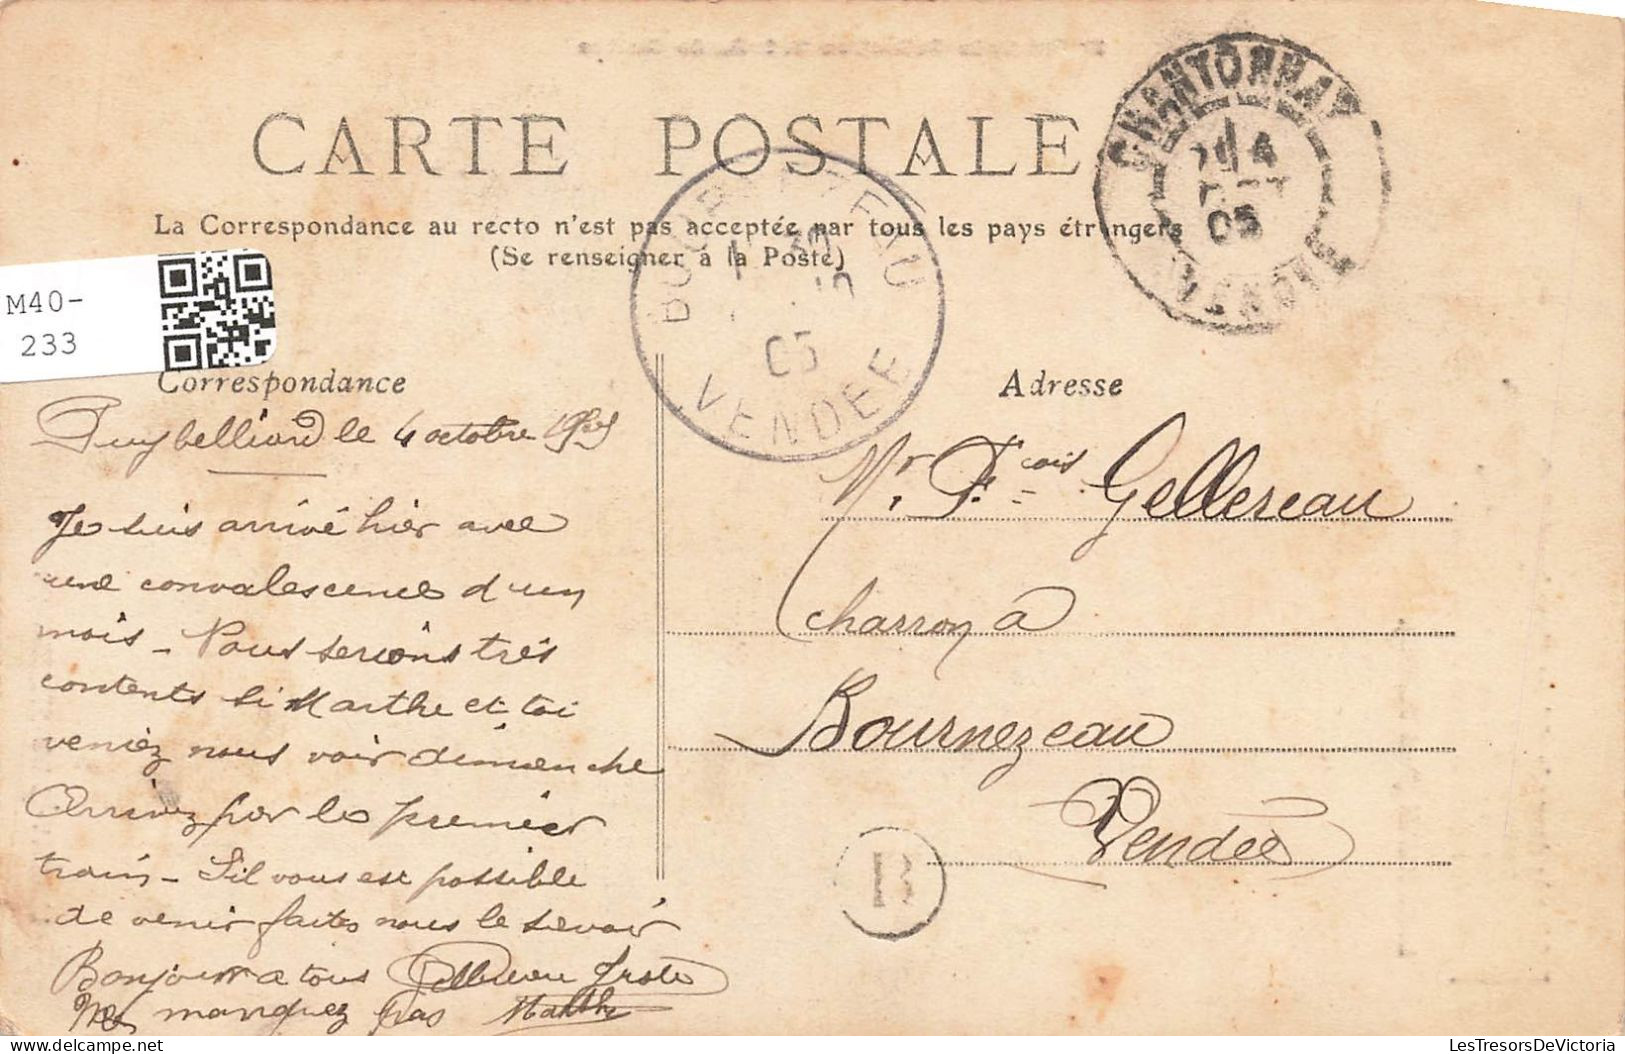 CARTE POSTALE
La Correspondance au recto n'est pas acceptée par tous les pays étrangers
(Se renseigner à la Poste)
CHANTONNAY
4
05
VENDÉE
BOURNEZEAU
05
VENDÉE
M40-
233
Correspondance
Puybelliard le 4 octobre 1905
Je suis arrivé hier avec
une convalescence d'un
mois - Nous serions très
contents si Marthe et toi
veniez nous voir dimanche
Arrivez par le premier
train - S'il vous est possible
de venir faites nous le savoir
Bonjour a tous Gellereau
Ne manquez pas Marthe
Adresse
Mr. Fcois Gellereau
charron à
Bournezeau
Vendée
B
LesTresorsDeVictoria.com